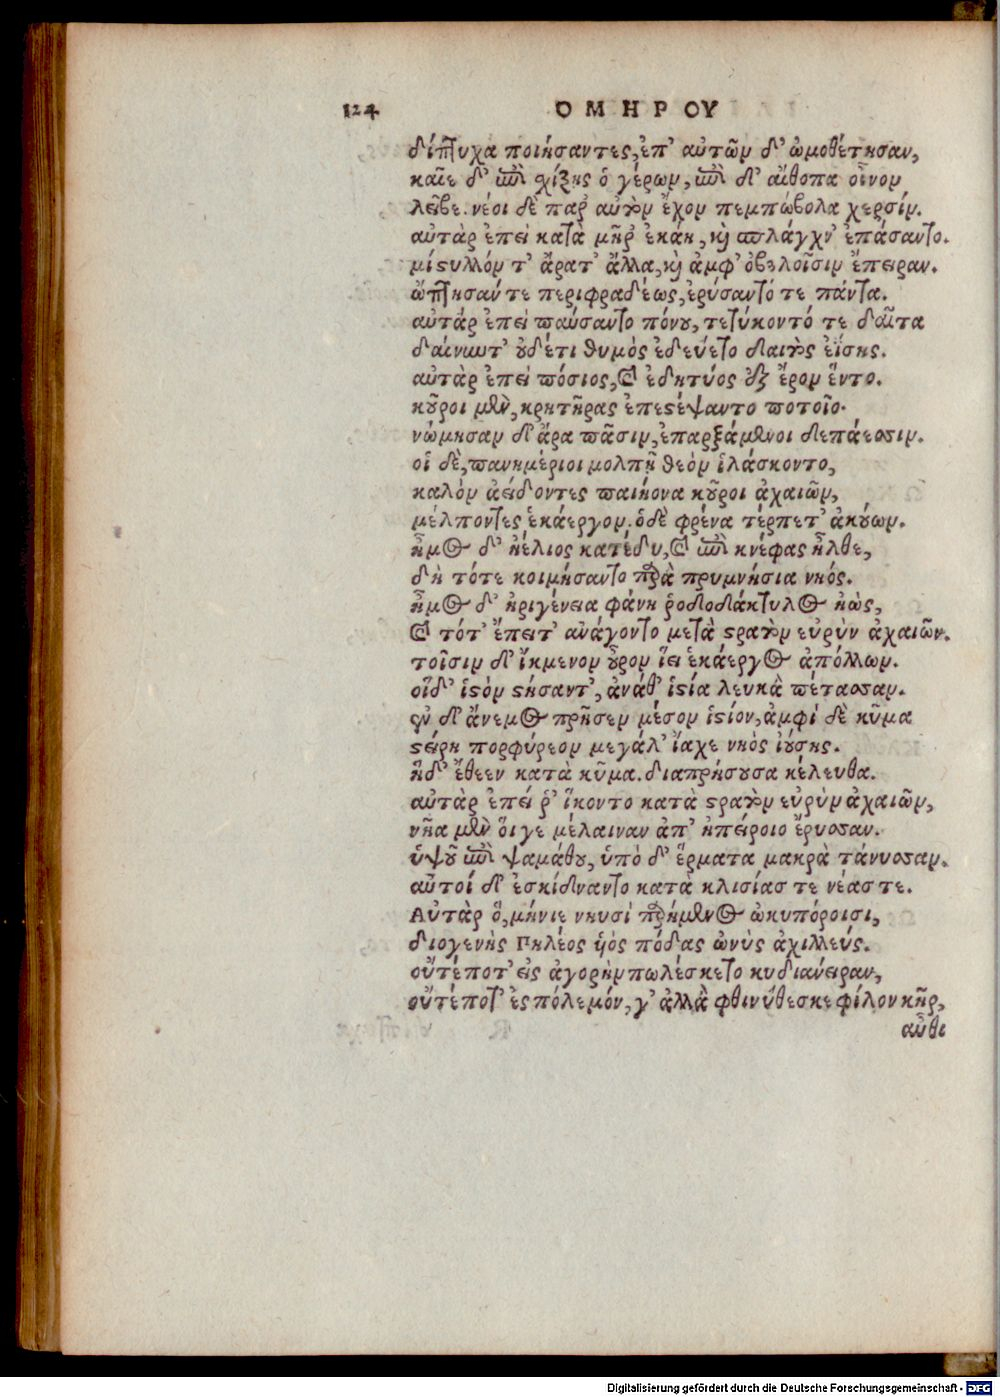 124 ΟΜΗΡΟΥ
δίπτυχα ποιήσαντες, ἐπ' αὐτῶν δ' ὠμοθέτησαν,
καῖε δ' ἐπὶ χίζης ὁ γέρων, ἐπὶ δ' αἴθοπα οἶνον
λεῖβε. νέοι δὲ παρ' αὐτὸν ἔχον πεμπώβολα χερσίν.
αὐτὰρ ἐπεὶ κατὰ μῆρ' ἐκάη, καὶ σπλάγχν' ἐπάσαντο.
μίστυλλόν τ' ἄρατ' ἄλλα, καὶ ἀμφ' ὀβελοῖσιν ἔπειραν.
ὤπτησάν τε περιφραδέως, ἐρύσαντό τε πάντα.
αὐτὰρ ἐπεὶ παύσαντο πόνου, τετύκοντό τε δαῖτα
δαίνυντ' οὐδέτι θυμὸς ἐδεύετο δαιτὸς ἐΐσης.
αὐτὰρ ἐπεὶ πόσιος, καὶ ἐδητύος ἐξ ἔρον ἕντο.
κοῦροι μὲν, κρητῆρας ἐπεστέψαντο ποτοῖο.
νώμησαν δ' ἄρα πᾶσιν, ἐπαρξάμενοι δεπάεσσιν.
οἱ δὲ, πανημέριοι μολπῇ θεὸν ἱλάσκοντο,
καλὸν ἀείδοντες παιήονα κοῦροι ἀχαιῶν,
μέλποντες ἑκάεργον. ὁδὲ φρένα τέρπετ' ἀκούων.
ἦμος δ' ἠέλιος κατέδυ, καὶ ἐπὶ κνέφας ἦλθε,
δὴ τότε κοιμήσαντο παρὰ πρυμνήσια νηός.
ἦμος δ' ἠριγένεια φάνη ῥοδοδάκτυλος ἠὼς,
καὶ τότ' ἔπειτ' ἀνάγοντο μετὰ στρατὸν εὐρὺν ἀχαιῶν.
τοῖσιν δ' ἴκμενον οὖρον ἵει ἑκάεργος ἀπόλλων.
οἵδ' ἱστὸν στήσαντ', ἀνάθ' ἱστία λευκὰ πέτασσαν.
ἐν δ' ἄνεμος πρῆσεν μέσον ἱστίον, ἀμφὶ δὲ κῦμα
στείρῃ πορφύρεον μεγάλ' ἴαχε νηὸς ἰούσης.
ἥδ' ἔθεεν κατὰ κῦμα. διαπρήσουσα κέλευθα.
αὐτὰρ ἐπεί ῥ' ἵκοντο κατὰ στρατὸν εὐρὺν ἀχαιῶν,
νῆα μὲν οἵγε μέλαιναν ἀπ' ἠπείροιο ἔρυσσαν.
ὑψοῦ ἐπὶ ψαμάθου, ὑπὸ δ' ἕρματα μακρὰ τάνυσσαν.
αὐτοὶ δ' ἐσκίδναντο κατὰ κλισίας τε νέας τε.
Αὐτὰρ ὅ, μήνιε νηυσὶ παρήμενος ὠκυπόροισι,
διογενὴς Πηλέος ὑὸς πόδας ὠκὺς ἀχιλλεύς.
οὔτέποτ' εἰς ἀγορὴν πωλέσκετο κυδιάνειραν,
οὔτέποτ' ἐς πόλεμόν, γ' ἀλλὰ φθινύθεσκε φίλον κῆρ,
αὖθι
Digitalisierung gefördert durch die Deutsche Forschungsgemeinschaft - DFG